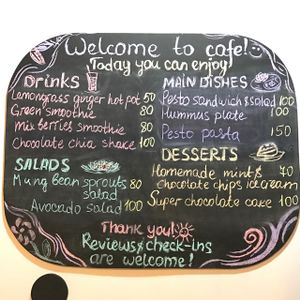 Welcome to cafe!
Today you can enjoy!
DRINKS
Lemongrass ginger hot pot 50
Green smoothie 80
Mix berries smoothie 80
Chocolate chia shake 100
SALADS
Mung bean sprouts salad 80
Avocado salad 100
MAIN DISHES
Pesto sandwich & salad 100
Hummus plate 100
Pesto pasta 150
DESSERTS
Homemade mint & chocolate chips ice cream 40
Super chocolate cake 100
Thank you!
Reviews & check-ins
are welcome!